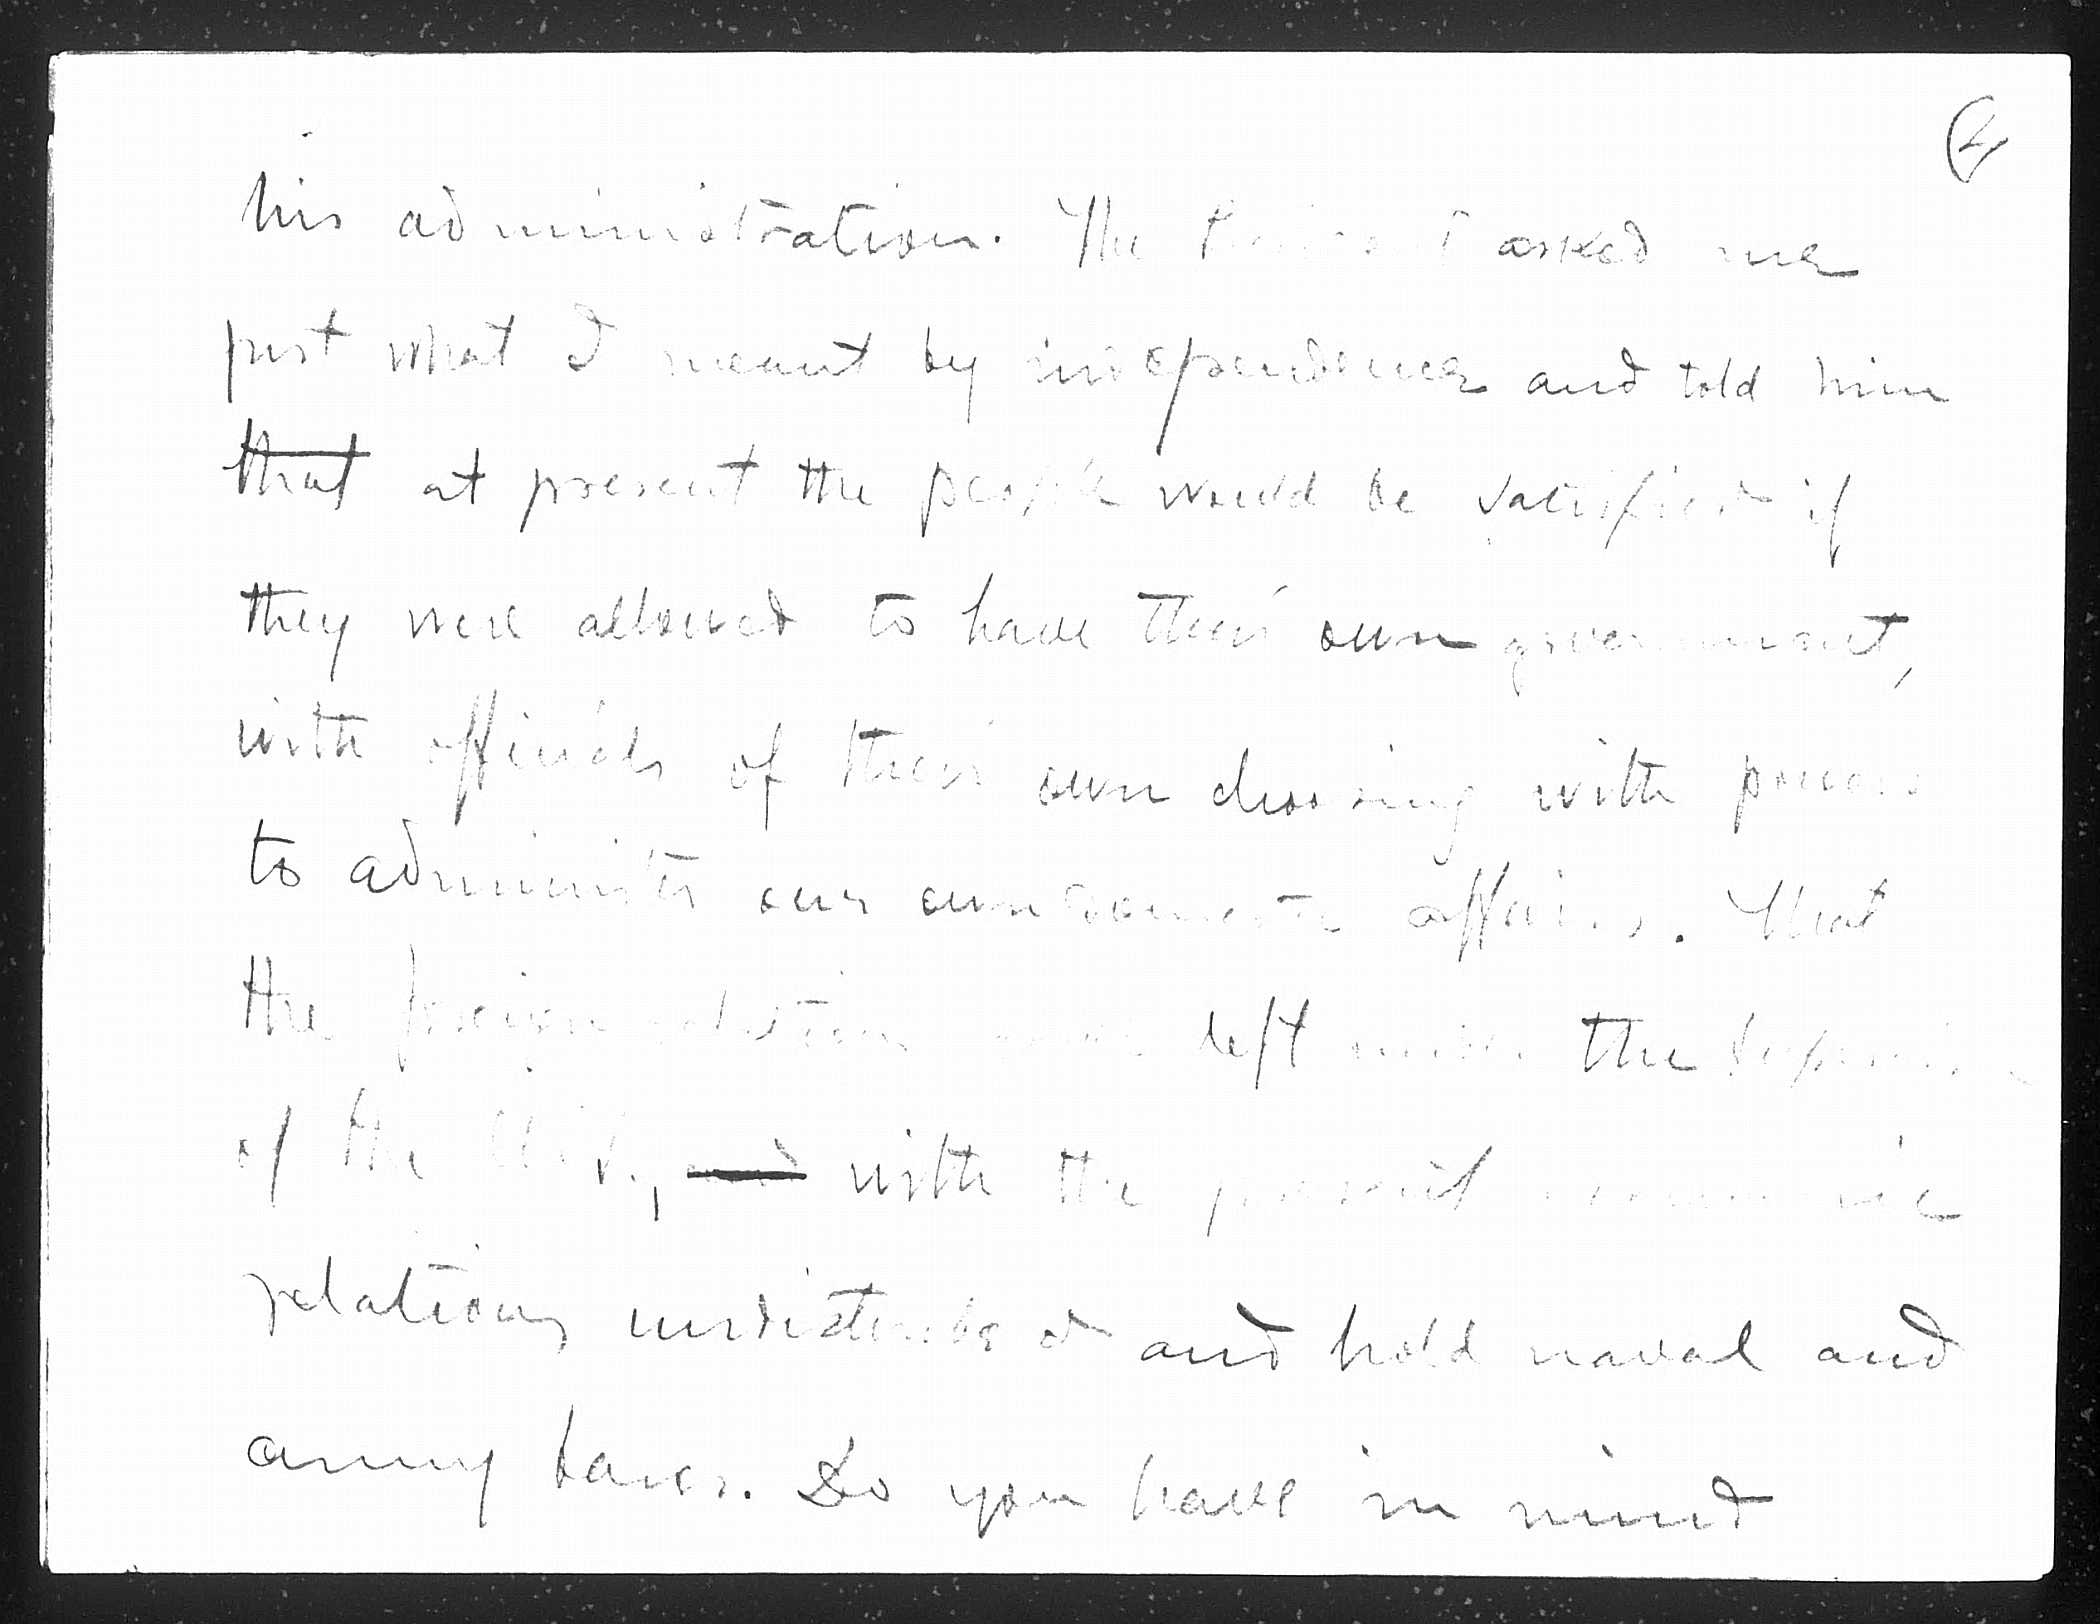 (2)
his administration. The President asked me
just what I meant by independence and told him
that at present the people would be satisfied if
they were allowed to have their own government,
with officials of their own choosing with powers
to administer our own domestic affairs. That
the foreign relations were left under the
of the U.S., and with the present economic
relations undisturbed and hold naval and
army bases. Do you have in mind